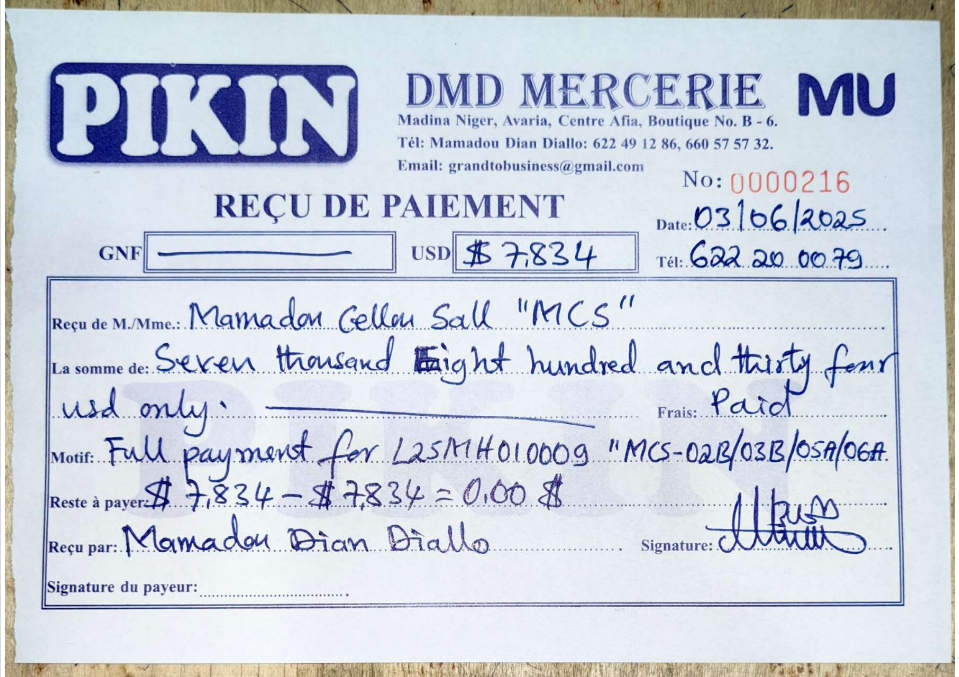 PIKIN
DMD MERCERIE MU
Madina Niger, Avaria, Centre Afia, Boutique No. B - 6.
Tél: Mamadou Dian Diallo: 622 49 12 86, 660 57 57 32.
Email: grandtobusiness@gmail.com
No: 0000216
REÇU DE PAIEMENT
Date: 03/06/2025
GNF USD $ 7,834
Tél: 622 20 00 79
Reçu de M./Mme.: Mamadou Cellou Sall "MCS"
La somme de: Seven thousand Eight hundred and thirty four
usd only. Frais: Paid
Motif: Full payment for L25MH010009 "MCS-02B/03B/05A/06A
Reste à payer: $ 7,834 - $ 7,834 = 0,00 $
Reçu par: Mamadou Dian Diallo Signature:
Signature du payeur:
PIKIN